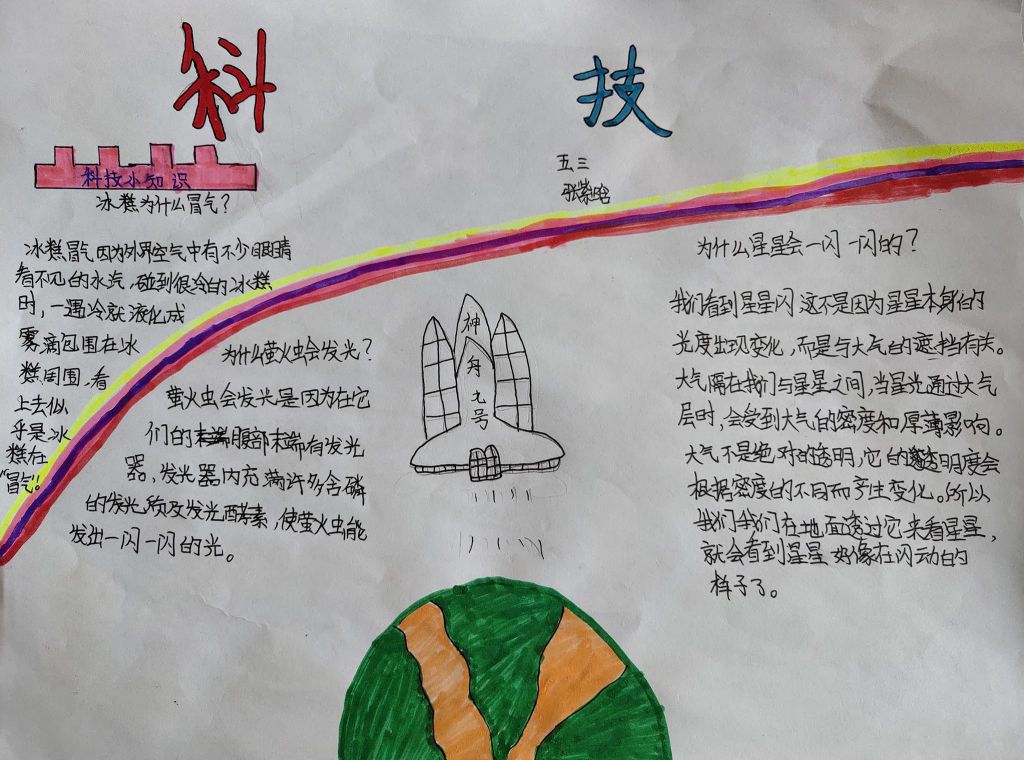 科技
五三
科技小知识
冰糕为什么冒气?
冰糕冒气因为外界空气中有不少眼睛
看不见的水汽,碰到很冷的冰糕
时,一遇冷就液化成
雾滴包围在冰
糕周围,看
上去似
乎是冰
糕在
"冒气"!
为什么萤火虫会发光?
萤火虫会发光是因为在它
们的腹部末端有发光
器。发光器内充满许多含磷
的发光质及发光酵素,使萤火虫能
发出一闪一闪的光。
神
舟
九
号
为什么星星会一闪一闪的?
我们看到星星闪这不是因为星星本身的
光度出现变化,而是与大气的遮挡有关。
大气隔在我们与星星之间,当星光通过大气
层时,会受到大气的密度和厚薄影响。
大气不是绝对的透明,它的透明度会
根据密度的不同而产生变化。所以
我们我们在地面透过它来看星星,
就会看到星星好像在闪动的
样子了。